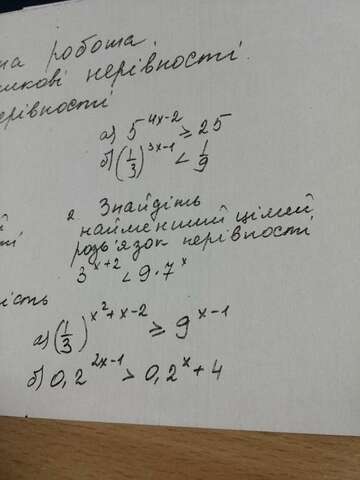 робота.
нерівності.
а) 5^{4x-2} ≥ 25
б) (1/3)^{3x-1} < 1/9
2 Знайдіть
найменший цілий
розв'язок нерівності
3^{x+2} < 9·7^x
а) (1/3)^{x^2+x-2} ≥ 9^{x-1}
б) 0,2^{2x-1} > 0,2^x + 4